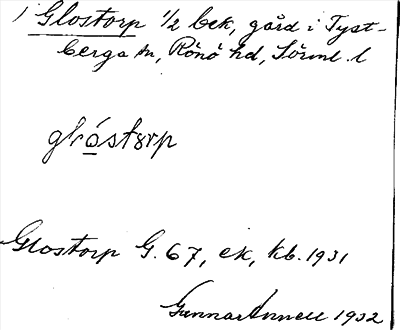 1 Glostorp 1/2 bek, gård i Tyst-
berga sn, Rönö hd, Sörml. l
glóstorp
Glostorp G. 67, ek, kb. 1931
Gunnar Annell 1932